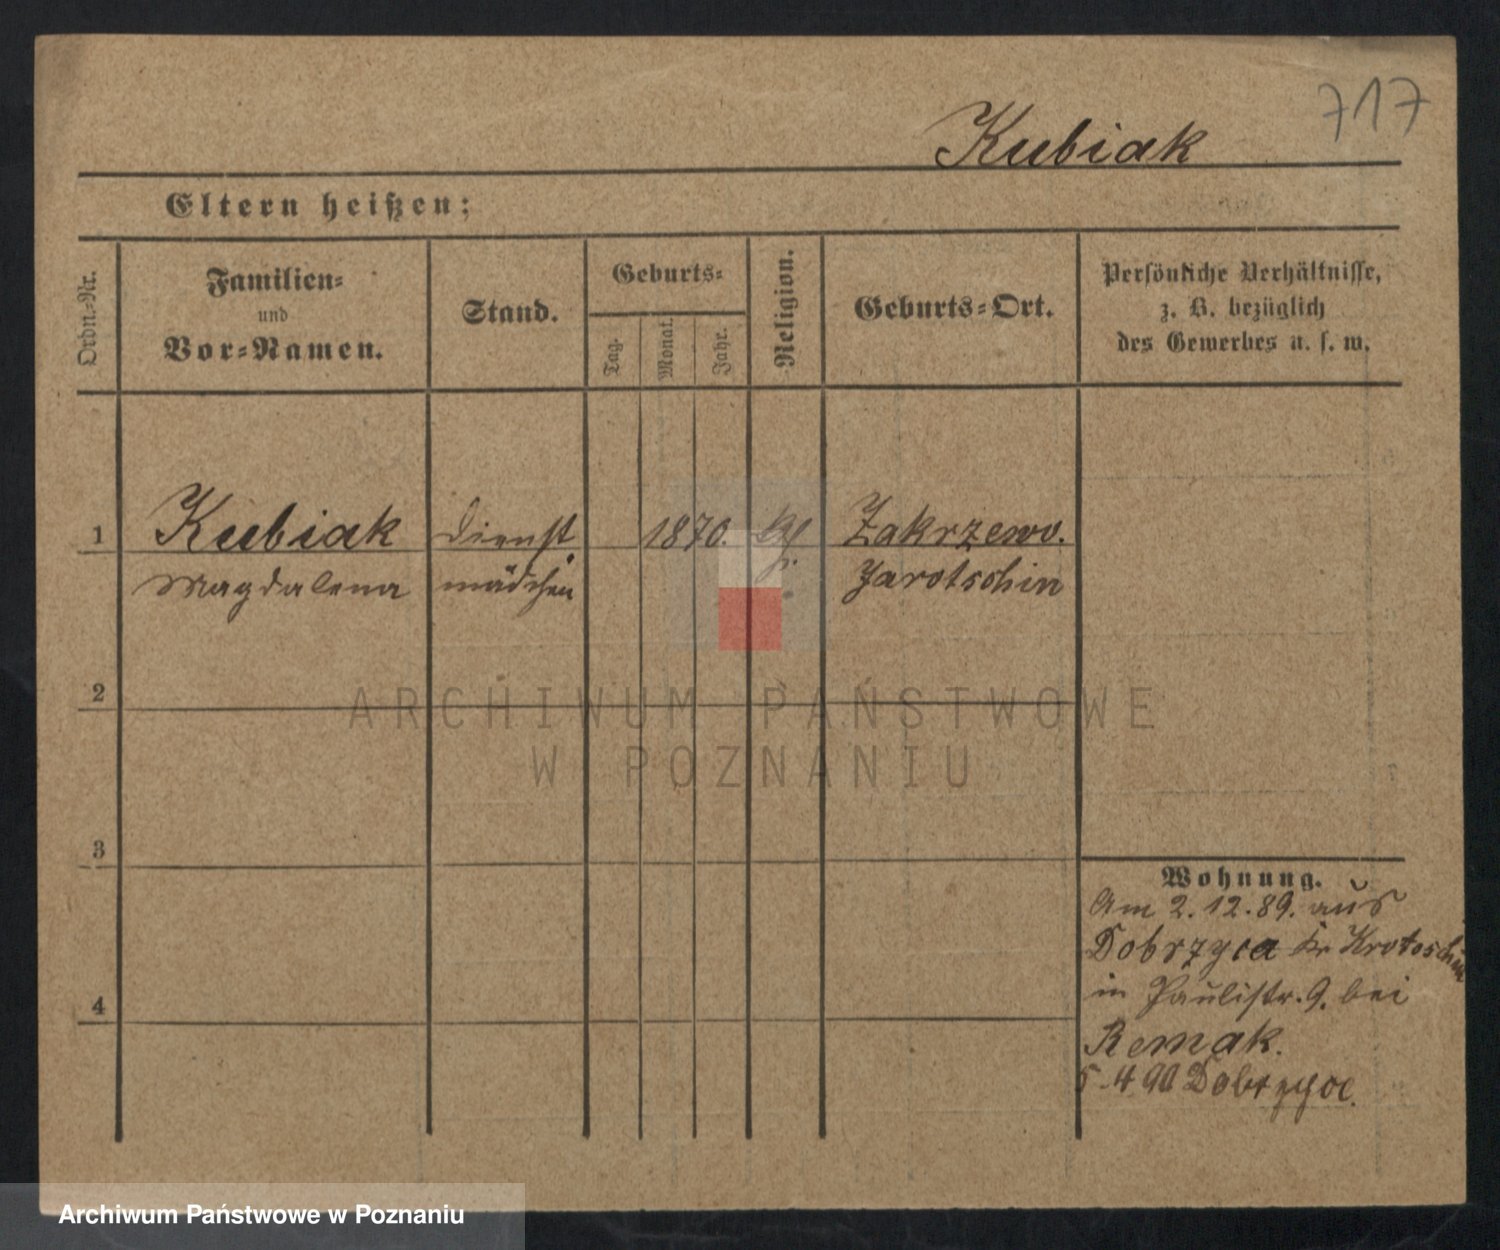 717
Kubiak
Eltern heißen:
Ordn.-Nr.
Familien-
und
Vor-Namen.
Stand.
Geburts-
Tag.
Monat.
Jahr.
Religion.
Geburts-Ort.
Persönliche Verhältnisse,
z. B. bezüglich
des Gewerbes u. s. w.
1 Kubiak Dienst 1870. Zakrzewo.
Magdalena mädchen Jarotschin
2
3
4
Wohnung.
Am 2.12.89. aus
Dobrzyca Kr Krotoschin
in Paulistr. 9. bei
Remak.
5.4.90 Dobrzyce.
ARCHIWUM PAŃSTWOWE
W POZNANIU
Archiwum Państwowe w Poznaniu